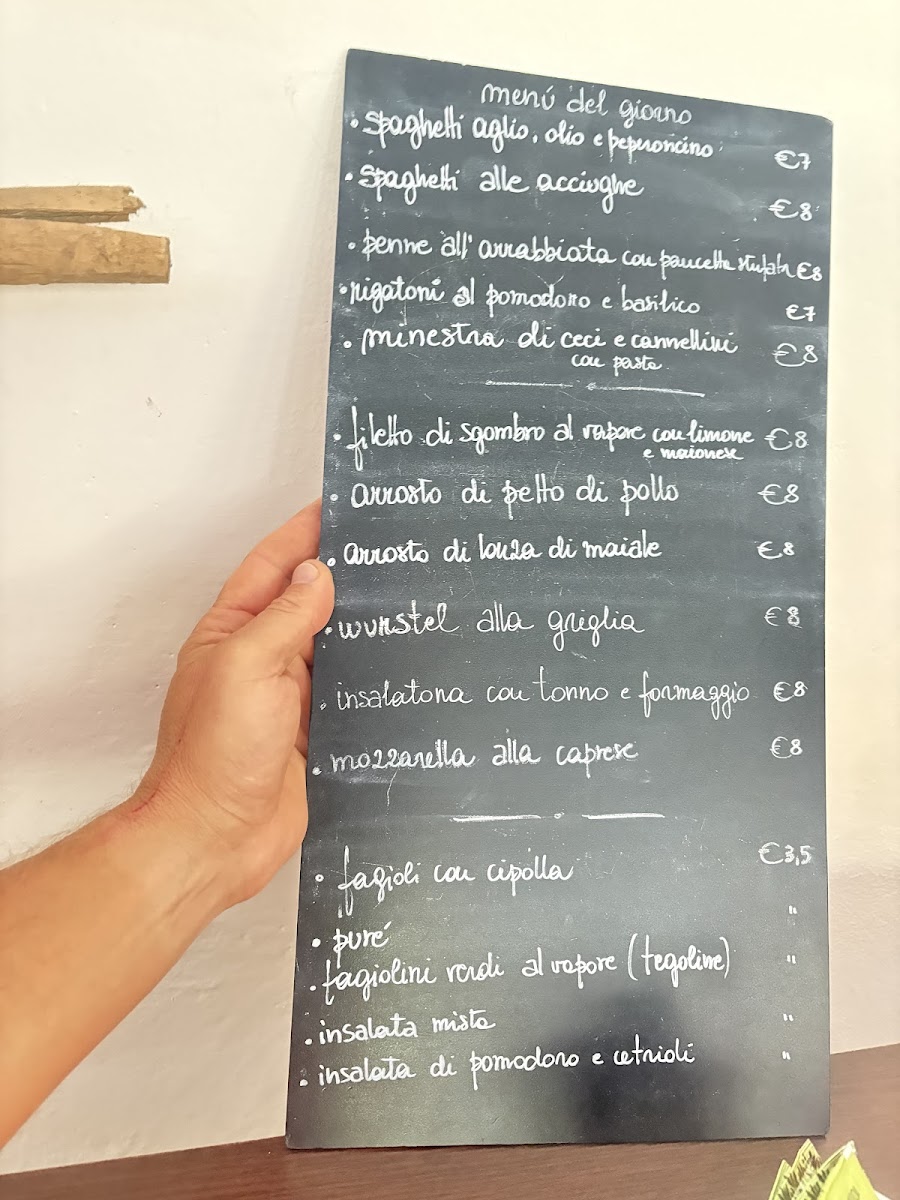 menú del giorno
• spaghetti aglio, olio e peperoncino €7
• spaghetti alle acciughe €8
• penne all'arrabbiata con pancetta stufata €8
• rigatoni al pomodoro e basilico €7
• minestra di ceci e cannellini €8
con pasta
• filetto di sgombro al vapore con limone €8
e maionese
• arrosto di petto di pollo €8
• arrosto di lonza di maiale €8
• wurstel alla griglia €8
• insalatona con tonno e formaggio €8
• mozzarella alla caprese €8
• fagioli con cipolla €3,5
• puré "
• fagiolini verdi al vapore (tegoline) "
• insalata mista "
• insalata di pomodoro e cetrioli "